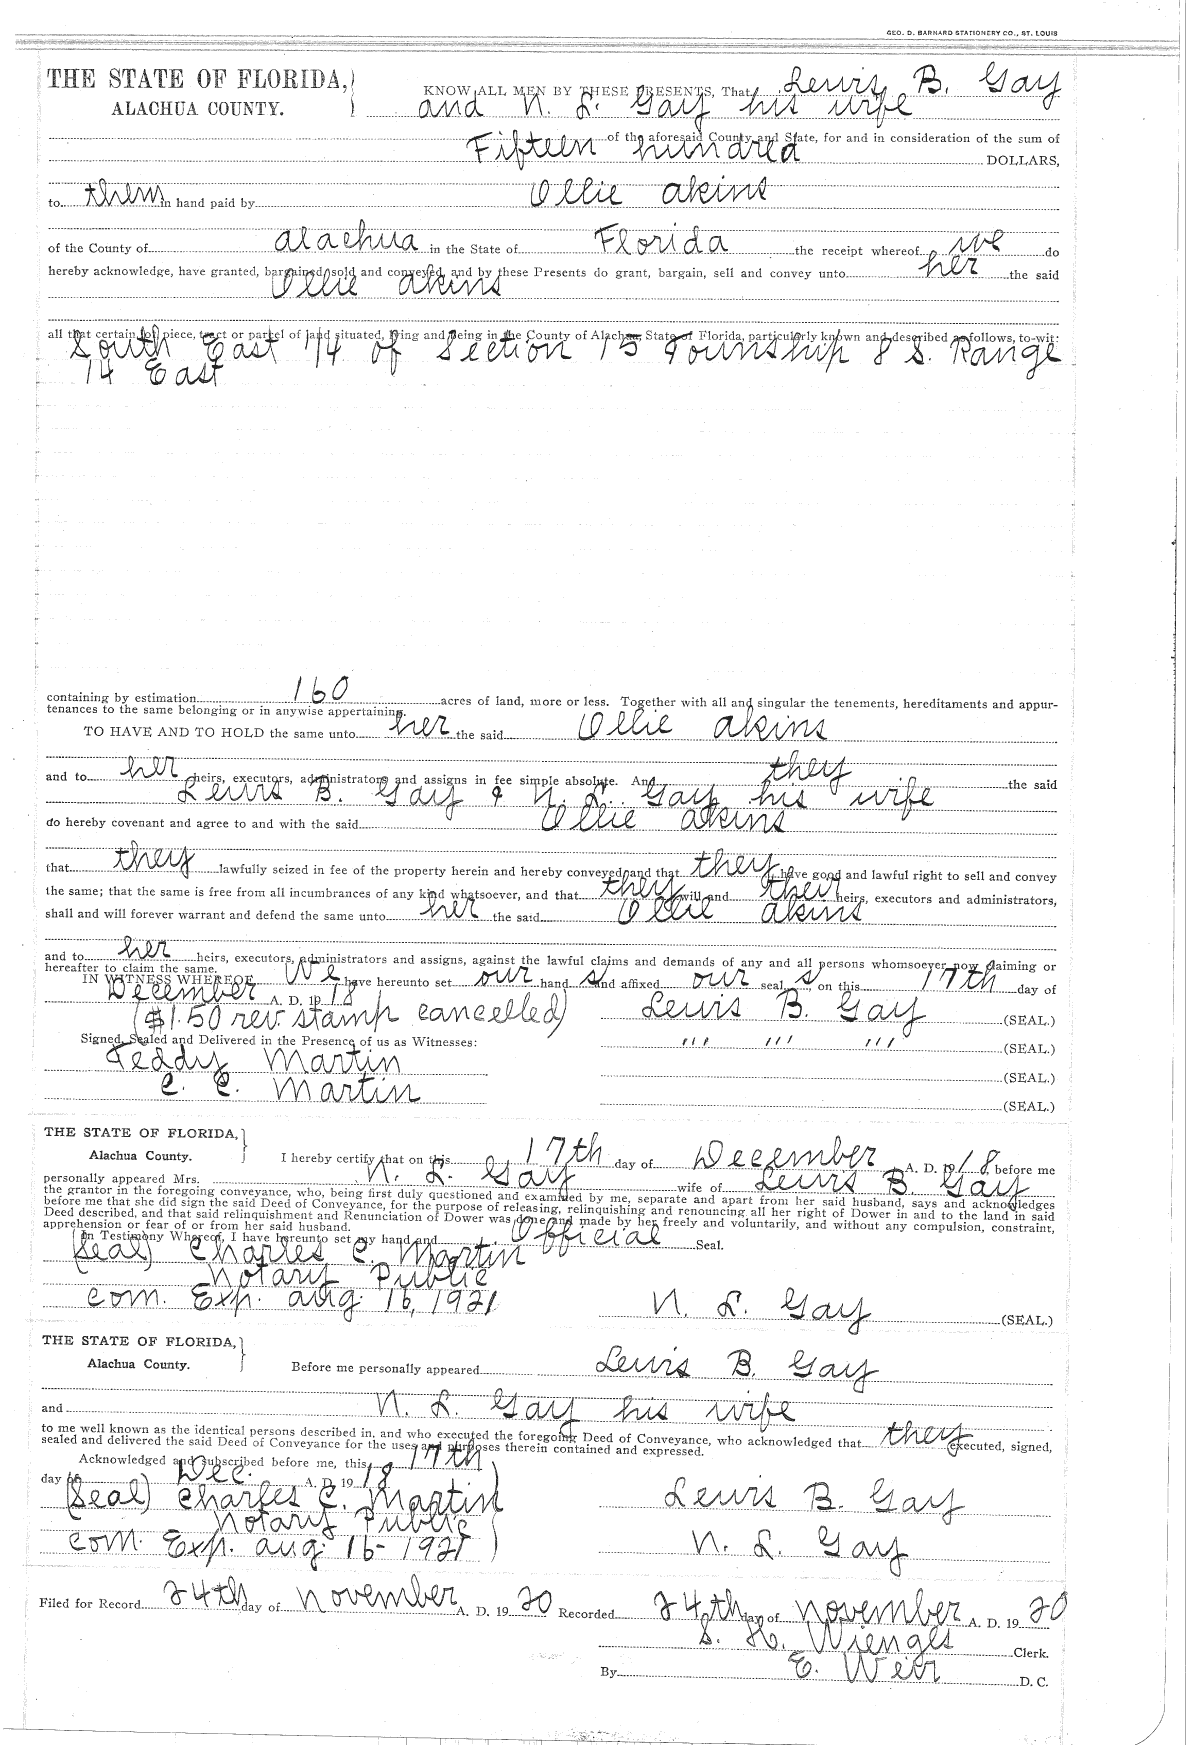 GEO. D. BARNARD STATIONERY CO., ST. LOUIS
THE STATE OF FLORIDA,
ALACHUA COUNTY.
KNOW ALL MEN BY THESE PRESENTS, That Lewis B. Gay
and N. L. Gay his wife
of the aforesaid County and State, for and in consideration of the sum of
Fifteen hundred DOLLARS,
to them in hand paid by Ollie akins
of the County of alachua in the State of Florida the receipt whereof we do
hereby acknowledge, have granted, bargained, sold and conveyed, and by these Presents do grant, bargain, sell and convey unto her the said
Ollie akins
all that certain lot, piece, tract or parcel of land situated, lying and being in the County of Alachua, State of Florida, particularly known and described as follows, to-wit:
South East 1/4 of Section 15 Township 8 S. Range
14 East
containing by estimation 160 acres of land, more or less. Together with all and singular the tenements, hereditaments and appur-
tenances to the same belonging or in anywise appertaining.
TO HAVE AND TO HOLD the same unto her the said Ollie akins
and to her heirs, executors, administrators and assigns in fee simple absolute. And they the said
Lewis B. Gay & N. L. Gay his wife
do hereby covenant and agree to and with the said Ollie akins
that they lawfully seized in fee of the property herein and hereby conveyed, and that they have good and lawful right to sell and convey
the same; that the same is free from all incumbrances of any kind whatsoever, and that they will and their heirs, executors and administrators,
shall and will forever warrant and defend the same unto her the said Ollie akins
and to her heirs, executors, administrators and assigns, against the lawful claims and demands of any and all persons whomsoever now claiming or
hereafter to claim the same.
IN WITNESS WHEREOF We have hereunto set our hand s and affixed our seal s on this 17th day of
December A. D. 19 18
($1.50 rev. stamp cancelled) Lewis B. Gay (SEAL.)
Signed, Sealed and Delivered in the Presence of us as Witnesses: ''' ''' ''' (SEAL.)
Teddy Martin (SEAL.)
C. C. Martin (SEAL.)
THE STATE OF FLORIDA,
Alachua County.
I hereby certify that on this 17th day of December A. D. 19 18, before me
personally appeared Mrs. N. L. Gay wife of Lewis B. Gay
the grantor in the foregoing conveyance, who, being first duly questioned and examined by me, separate and apart from her said husband, says and acknowledges
before me that she did sign the said Deed of Conveyance, for the purpose of releasing, relinquishing and renouncing all her right of Dower in and to the land in said
Deed described, and that said relinquishment and Renunciation of Dower was done and made by her freely and voluntarily, and without any compulsion, constraint,
apprehension or fear of or from her said husband.
In Testimony Whereof, I have hereunto set my hand and Official Seal.
(Seal) Charles C. Martin
Notary Public
Com. Exp. aug. 16, 1921 N. L. Gay (SEAL.)
THE STATE OF FLORIDA,
Alachua County.
Before me personally appeared Lewis B. Gay
and N. L. Gay his wife
to me well known as the identical persons described in, and who executed the foregoing Deed of Conveyance, who acknowledged that they executed, signed,
sealed and delivered the said Deed of Conveyance for the uses and purposes therein contained and expressed.
Acknowledged and subscribed before me, this 17th
day of Dec. A. D. 19 18
(Seal) Charles C. Martin Lewis B. Gay
Notary Public
Com. Exp. aug. 16- 1921 N. L. Gay
Filed for Record 24th day of November A. D. 19 20 Recorded 24th day of November A. D. 19 20
S. H. Wienges Clerk.
By E. Weir D. C.